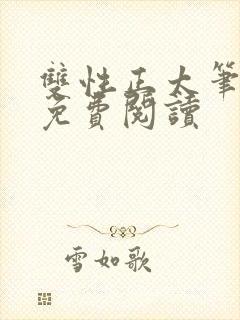 雙性正太筆
免費閱讀
雪如歌